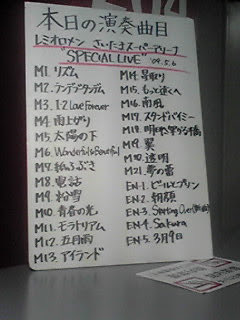 本日の演奏曲目
レミオロメン さいたまスーパーアリーナ
"SPECIAL LIVE" '09.5.6
M1. リズム
M2. ランデブタンデム
M3. 1-2 Love Forever
M4. 雨上がり
M5. 太陽の下
M6. Wonderful & Beautiful
M7. 紙ふぶき
M8. 電話
M9. 粉雪
M10. 青春の光
M11. モラトリアム
M12. 五月雨
M13. アイランド
M14. 星取り
M15. もっと遠くへ
M16. 南風
M17. スタンドバイミー
M18. 明日に架かる橋
M19. 翼
M20. 透明
M21. 夢の蕾
EN-1. ビールとプリン
EN-2. 朝顔
EN-3. Starting Over
EN-4. Sakura
EN-5. 3月9日